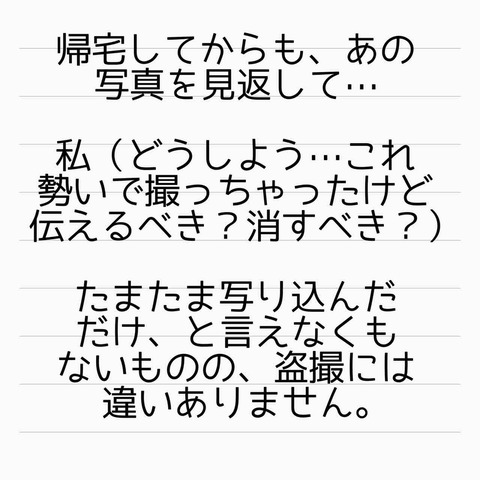 帰宅してからも、あの
写真を見返して…
私（どうしよう…これ
勢いで撮っちゃったけど
伝えるべき？消すべき？）
たまたま写り込んだ
だけ、と言えなくも
ないものの、盗撮には
違いありません。